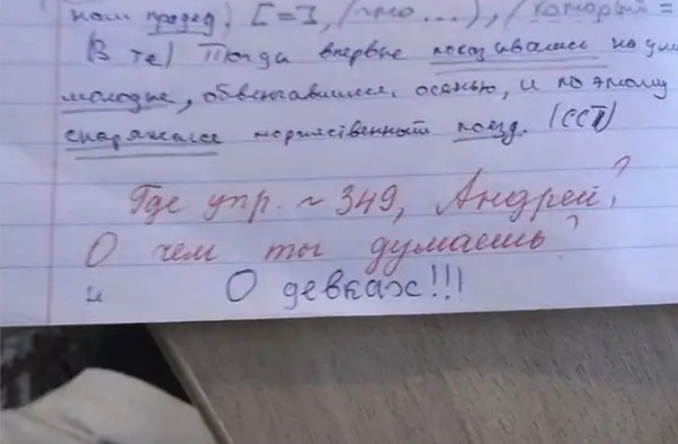 наш прадед. [=], (что...), (который =
(В те) Тогда впервые показывались на ули
молодые, обвенчавшиеся осенью, и по этому
снаряжался торжественный поезд. (ССП)
Где упр. ~ 349, Андрей?
О чем ты думаешь?
и О девках!!!